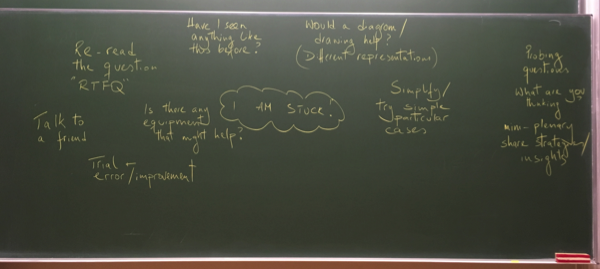 Have I seen
anything like
this before?
Would a diagram/
drawing help?
(Different representations)
Re-read
the question
"RTFQ"
Probing
questions
What are you
thinking
mini-plenary
share strategies/
insights
Simplify/
try simple
particular
cases
I AM STUCK!
Is there any
equipment
that might help?
Talk to
a friend
Trial
error/improvement